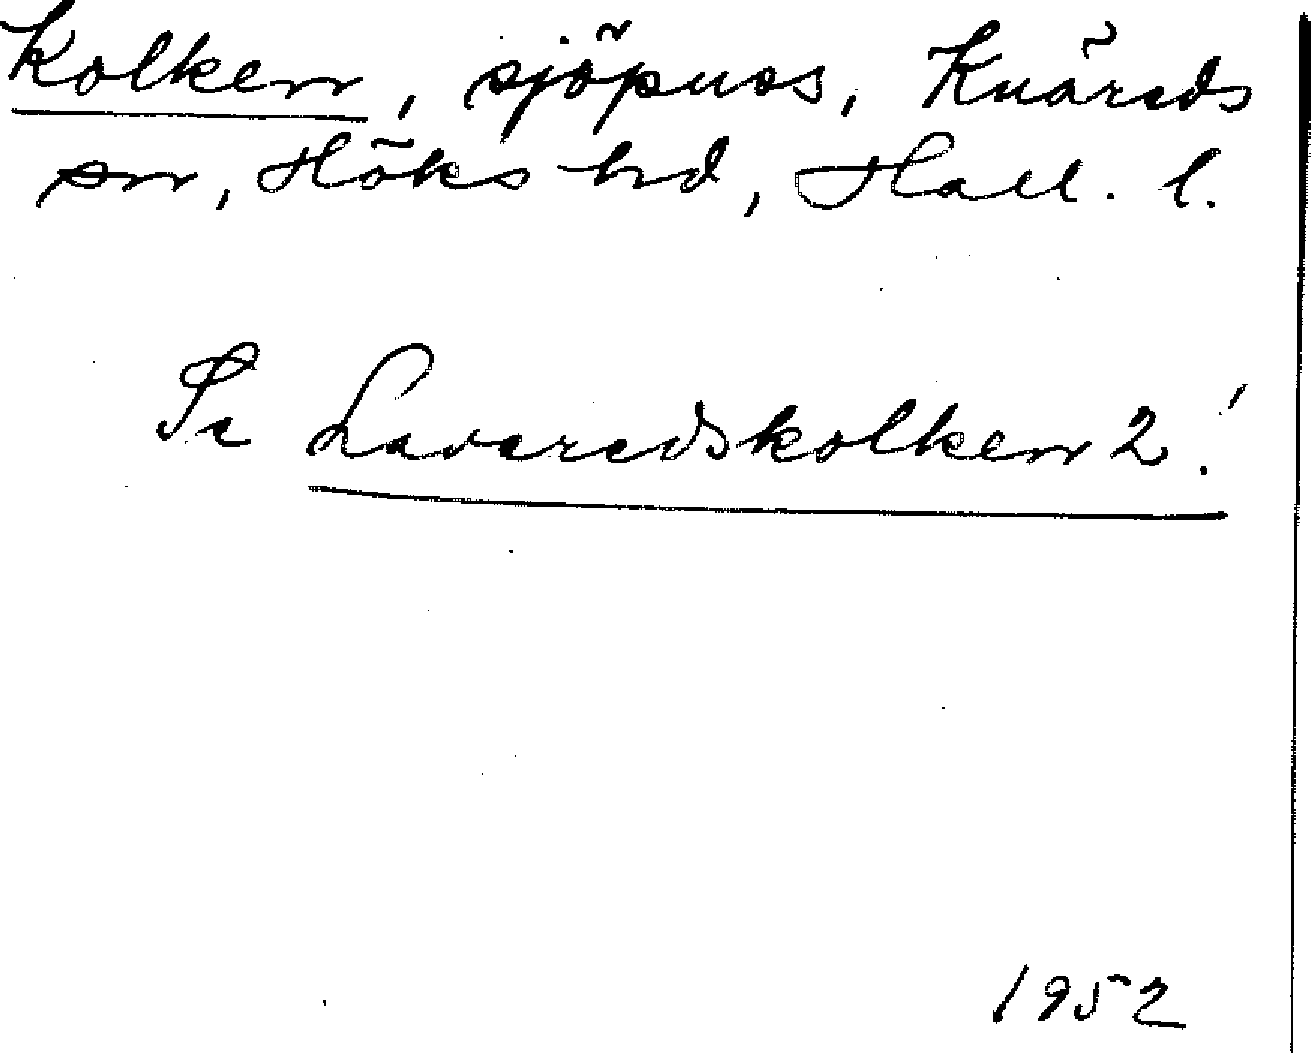 Kolken, sjöpuss, Knäreds
sn, Höks hd, Hall. l.
Se Lavaredskolken 2!
1952